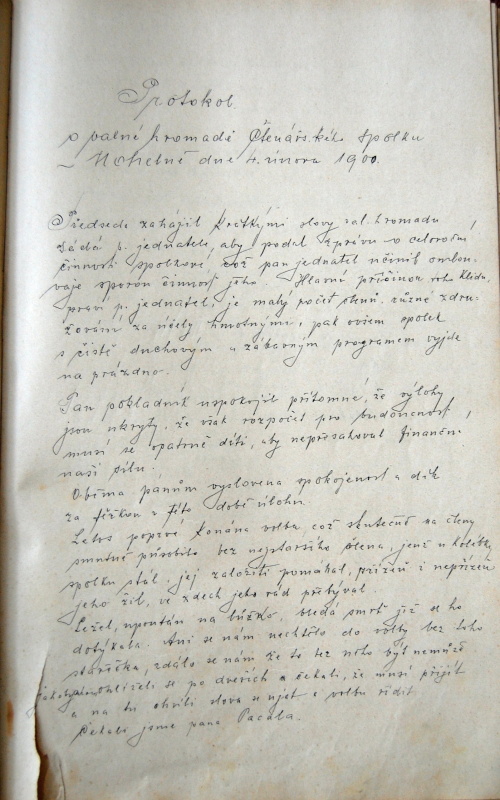 Protokol
o valné hromadě Čtenářského spolku
v Mohelně dne 4. února 1900.
Předseda zahájil krátkými slovy val. hromadu
žádá p. jednatele, aby podal zprávu o celoroční
činnosti spolkové, což pan jednatel učinil omlou-
vaje sporou činnost jeho. Hlavní příčinou toho klidu,
praví p. jednatel, je malý počet členů. různé zdru-
žování za účely hmotnými, pak ovšem spolek
s čistě duchovým a zábavným programem vyjde
na prázdno.
Pan pokladník uspokojil přítomné, že výlohy
jsou ukryty, že však rozpočet pro budoucnosť
musí se opatrně díti, aby nepřesahoval finanční
naši sílu.
Oběma pánům vyslovena spokojenosť a dík
za těžkou v této době úlohu.
Letos poprvé konána volba což skutečně na členy
smutně působilo bez nejstaršího člena, jenž u kolébky
spolku stál, jej založiti pomáhal, přízeň i nepřízeň
jeho žil, ve zdech jeho rád přebýval.
Ležel, upoután na lůžko, bledá smrť již se ho
dotýkala. Ani se nám nechtělo do volby bez toho
stařečka, zdálo se nám že to bez něho být nemůže
ohlíželi se po dveřích a čekali, že musí přijít
a na tu chvíli slova se ujet a volbu řídit.
Čekali jsme pana Pacala.